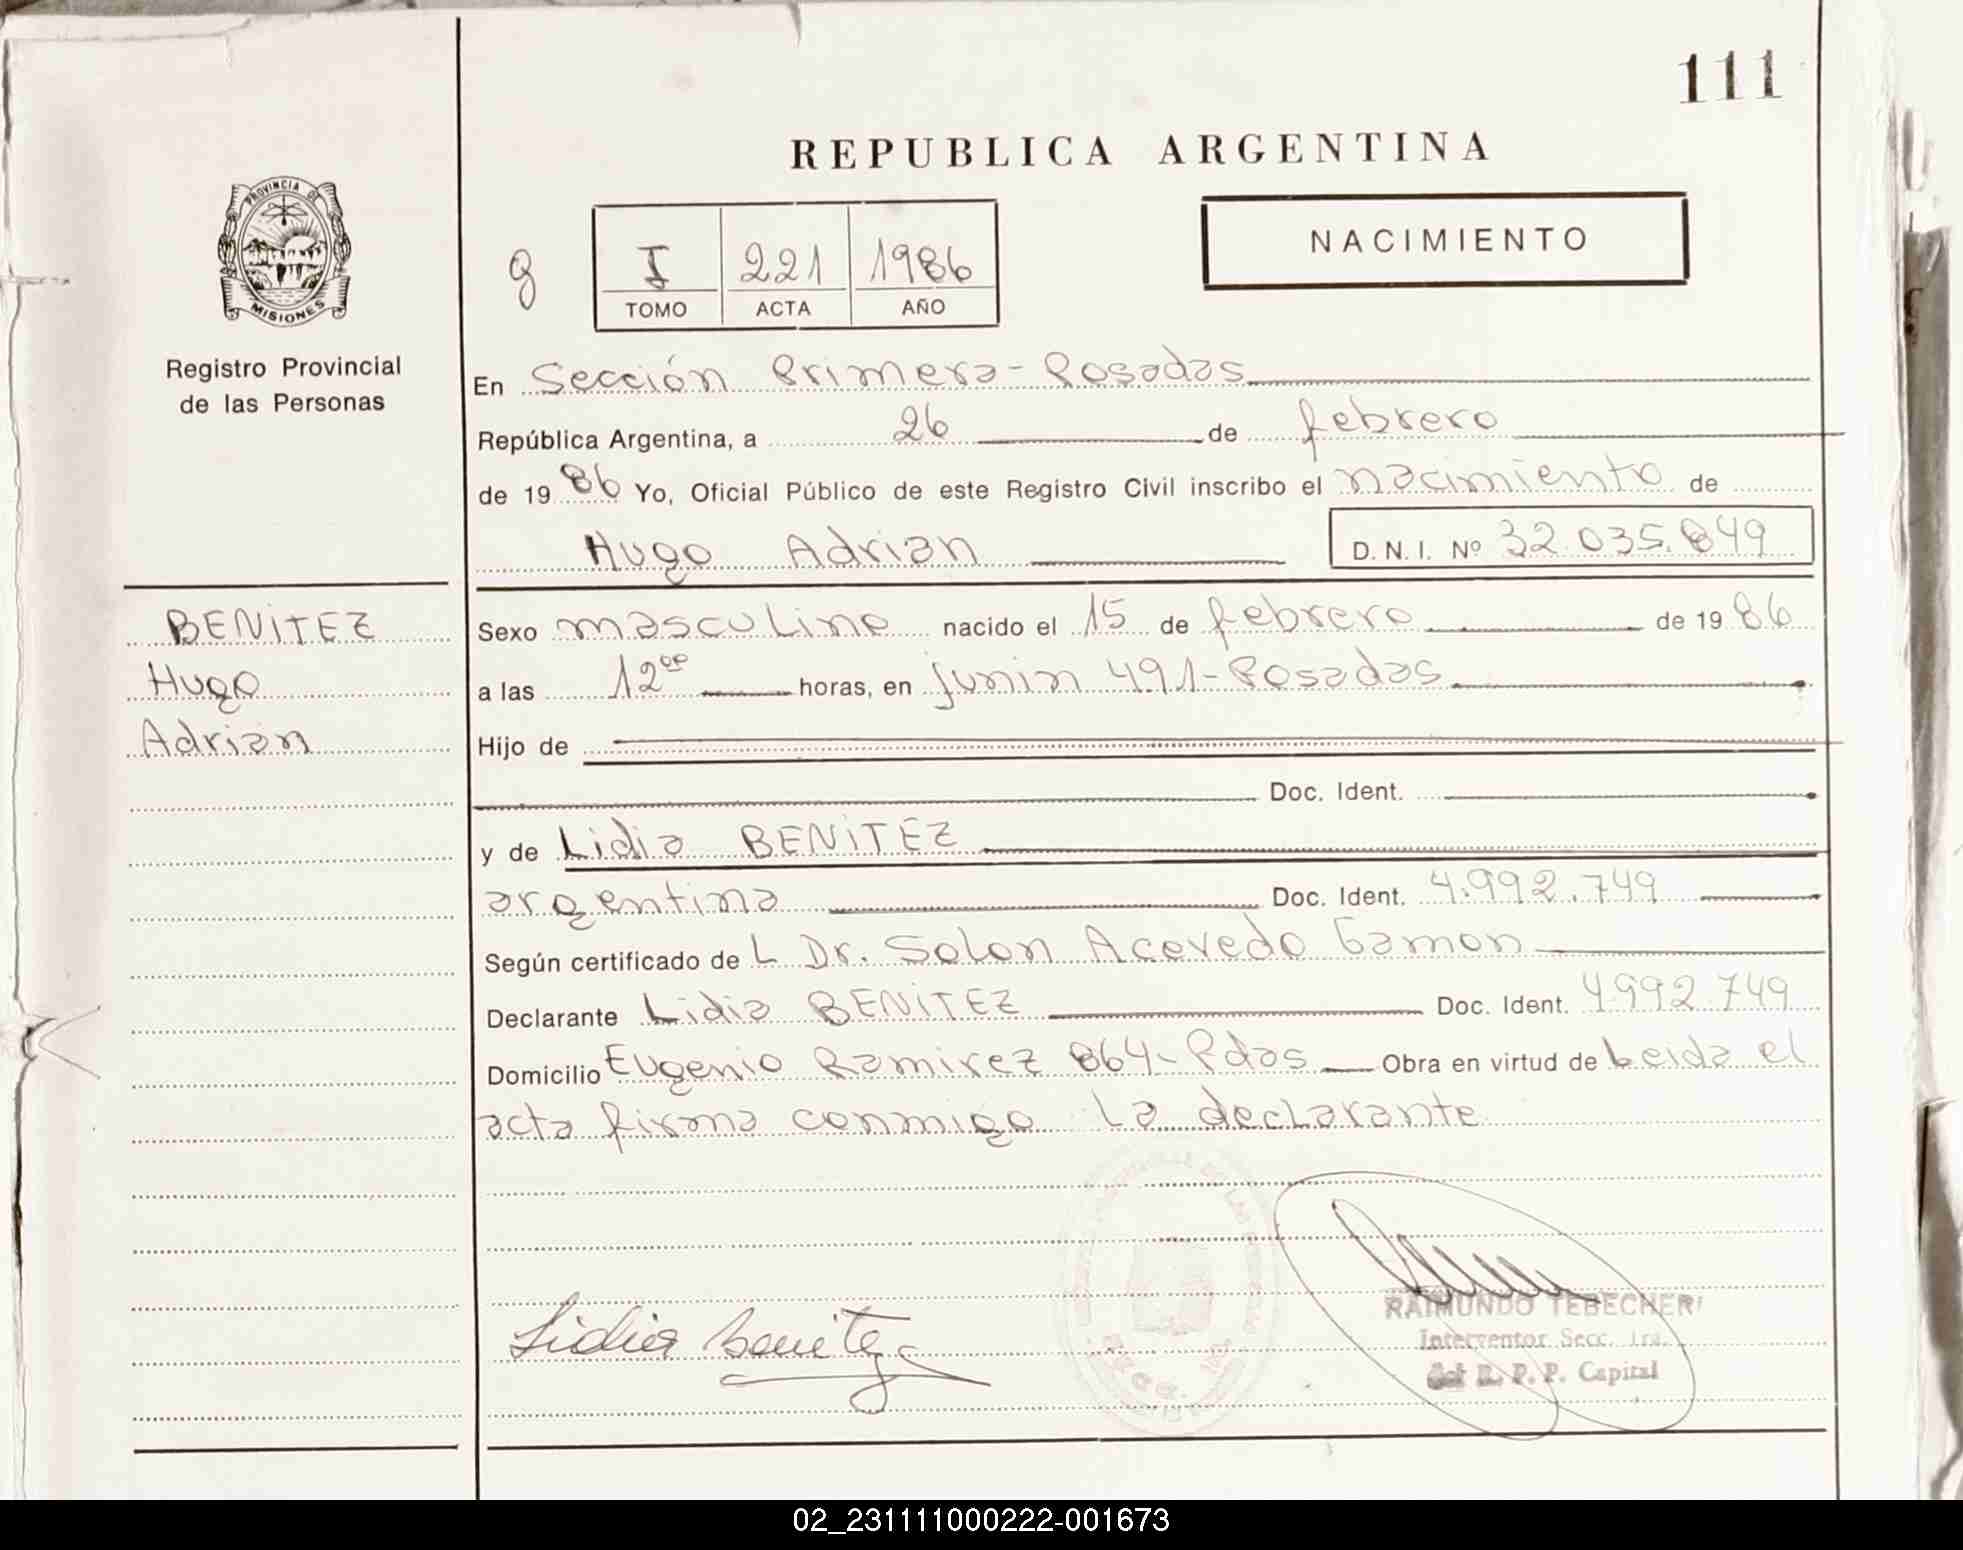 111
REPUBLICA ARGENTINA
PROVINCIA DE
MISIONES
Registro Provincial
de las Personas
g
I 221 1986
TOMO ACTA AÑO
NACIMIENTO
En Sección Primera - Posadas
República Argentina, a 26 de febrero
de 1986 Yo, Oficial Público de este Registro Civil inscribo el nacimiento de
Hugo Adrian D. N. I. Nº 32.035.849
BENiTEZ
Hugo
Adrian
Sexo masculino nacido el 15 de febrero de 1986
a las 12 00 horas, en junin 491 - Posadas
Hijo de
Doc. Ident.
y de Lidia BENiTEZ
argentina Doc. Ident. 4.992.749
Según certificado de L Dr. Solon Acevedo Gamon
Declarante Lidia BENiTEZ Doc. Ident. 4992.749
Domicilio Eugenio Ramirez 864 - Pdas Obra en virtud de Leida el
acta firma conmigo la declarante
Lidia Benitez
RAIMUNDO TEBECHERI
Interventor Secc. 1ra.
R. P. P. Capital
02_231111000222-001673